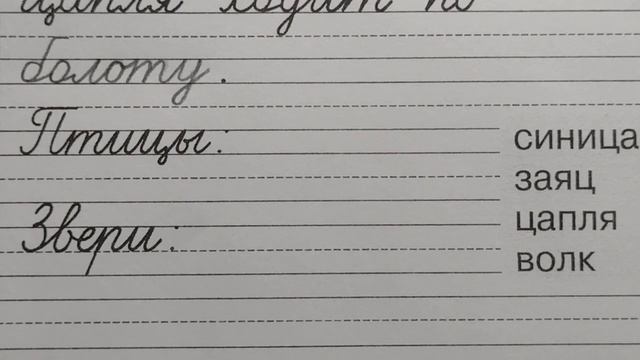 цапля ходит по
болоту.
Птицы:
Звери:
синица
заяц
цапля
волк